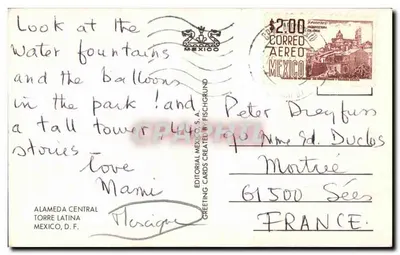 Look at the
water fountains
and the balloons
in the park! and
a tall tower, 44
stories -
love
Mami
Mexique
ALAMEDA CENTRAL
TORRE LATINA
MEXICO, D. F.
MEXICO
EDITORIAL MEXICO, S. A.
GREETING CARDS CREATED BY FISCHGRUND
$2.00
CORREO
AEREO
MEXICO
Peter Dreyfuss
Mme Sd. Duclos
Mortrée
61500 Sées
FRANCE.